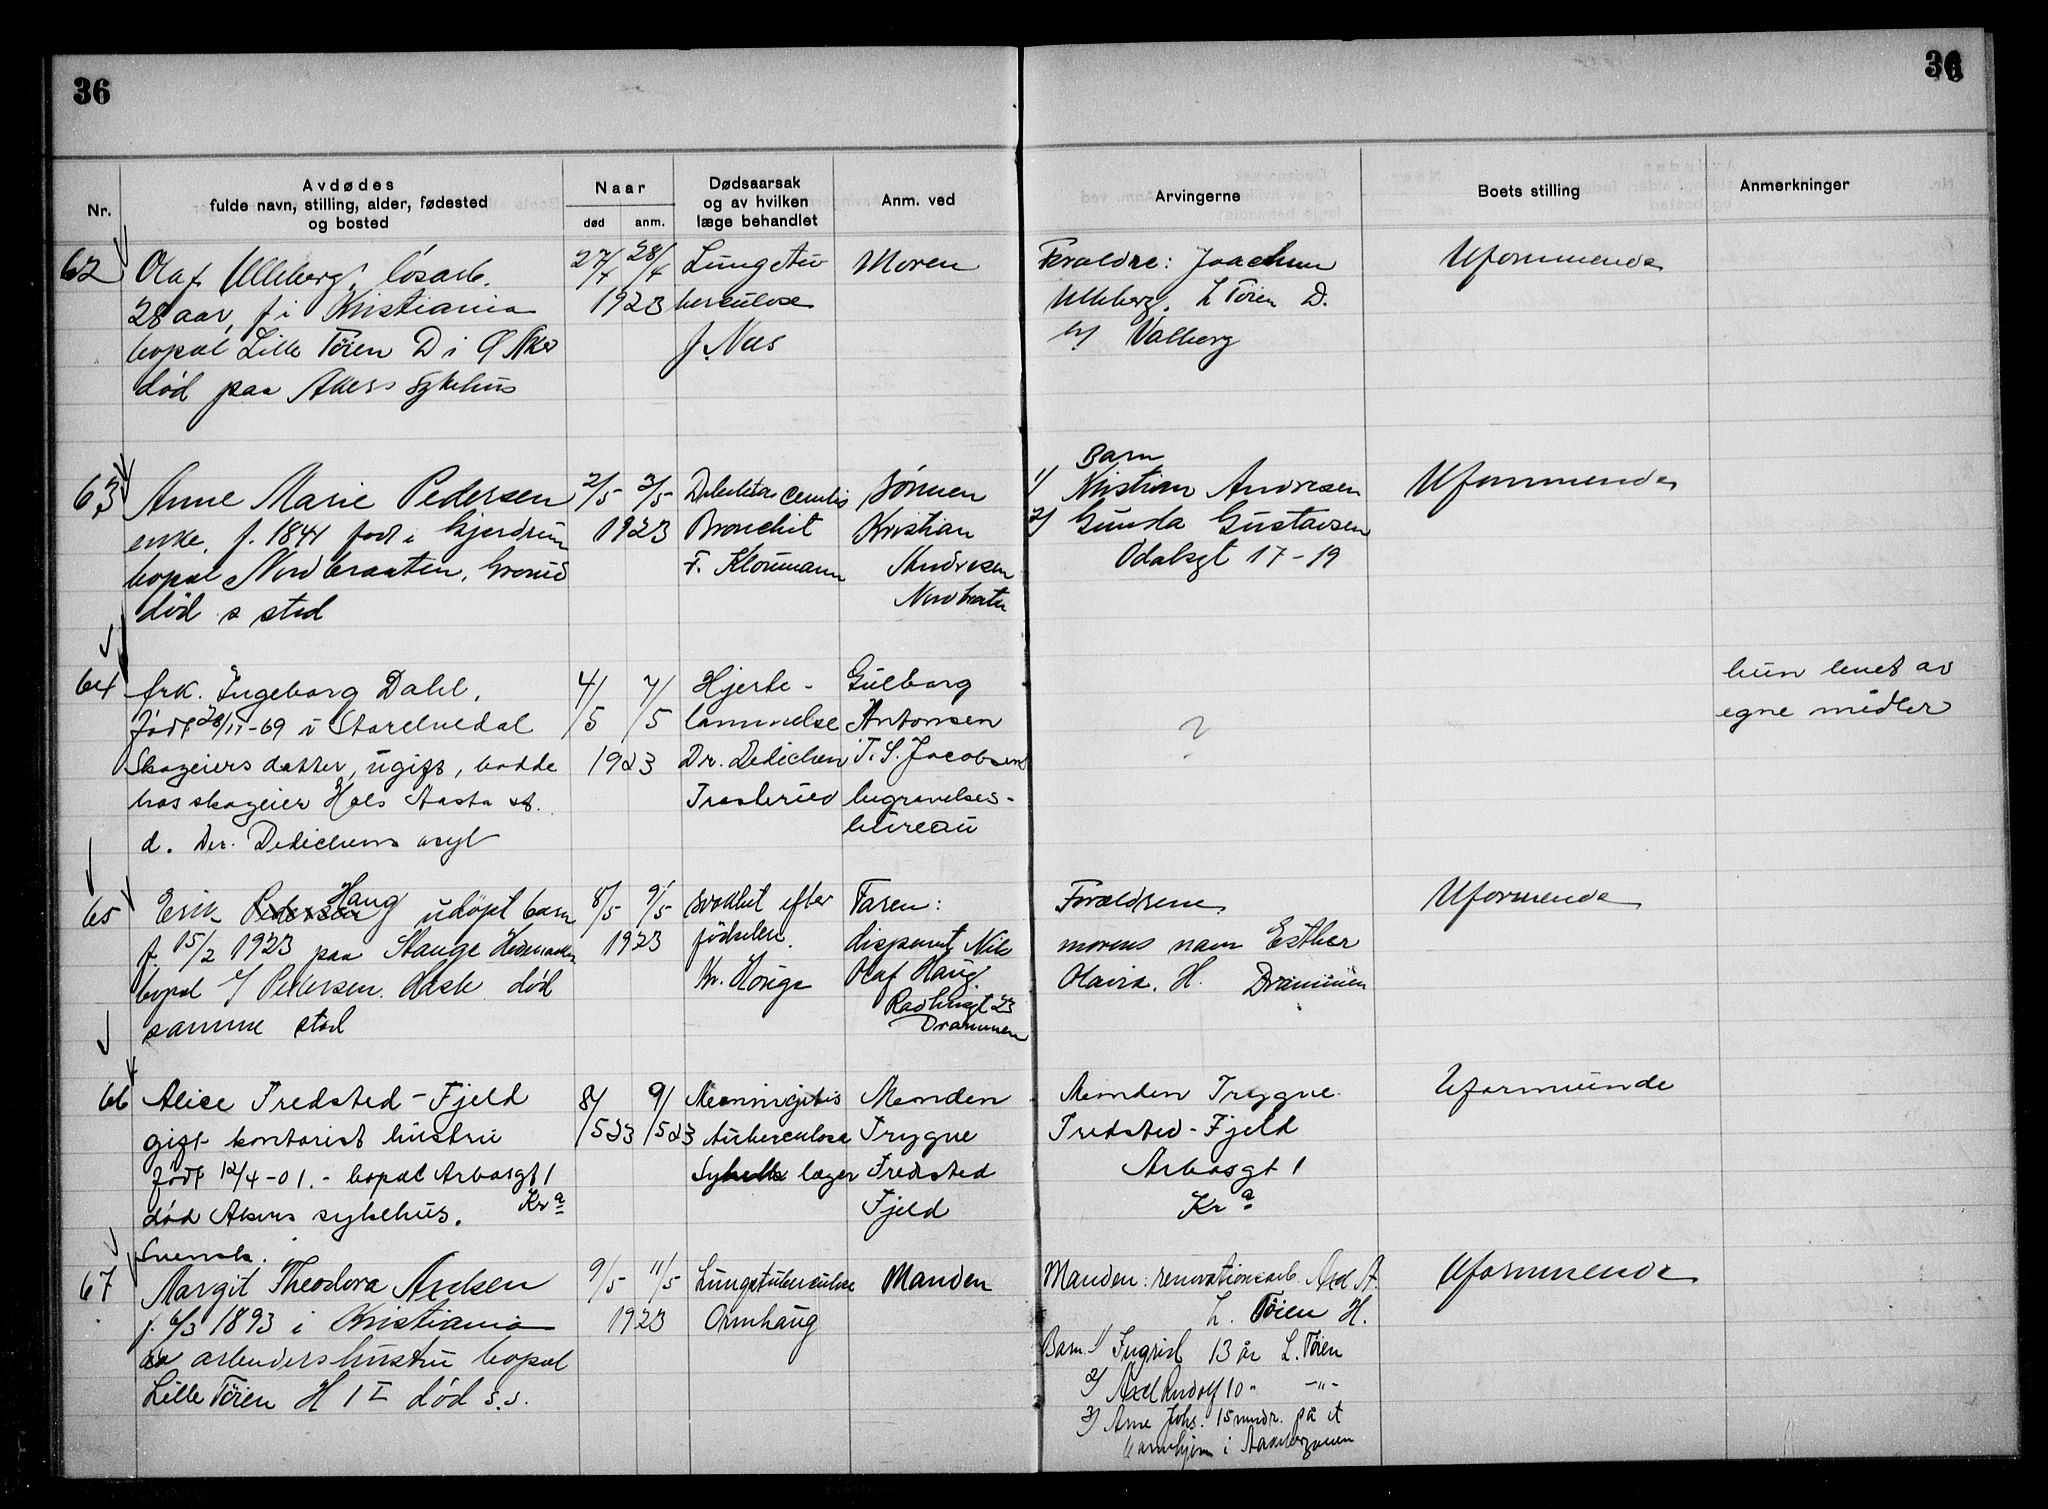 36
36
Nr.
Avdødes
fulde navn, stilling, alder, fødested
og bosted
Naar
død
anm.
Dødsaarsak
og av hvilken
læge behandlet
Anm. ved
Arvingerne
Boets stilling
Anmerkninger
62
Olaf Ulleberg, løsarb.
28 aar, f i Kristiania
bopæl Lille Tøien D i Ø Aker
død paa Akers sykehus
27/4 28/4
1923
Lungetu
berculose
J. Næs
Moren
Foreldre: Joachim
Ulleberg, L Tøien D.
Valberg
Uformuende
63
Anne Marie Pedersen
enke, f. 1841 født i Gjerdrum
bopæl Nordbraaten, Grorud
død s sted
2/5 3/5
1923
Bronchit
F. Kloumann
Sønnen
Kristian
Andresen
Nordbraaten
Barn
1) Kristian Andresen
2) Gunda Gustavsen
Odalsgt 17-19
Uformuende
64
frk. Ingeborg Dahl,
født 28/11-69 i Storelvedal
Skogeiers datter, ugift, bodde
hos skogeier Hols Aasta st.
d. Dr. Dedichens asyl
4/5 7/5
1923
Hjerte-
lammelse
Dr. Dedichen
Trosterud
Gulborg
Antonsen
T. S. Jacobsens
begravelses-
bureau
?
hun levet av
egne midler
65
Erik Pedersen Haug udøpt barn
f. 15/2 1923 paa Stange Hedmarken
bopæl c/ Pedersen. død
samme sted
8/5 9/5
1923
svakhet efter
fødselen.
Kr. Hauge
Faren:
disponent Nils
Olaf Haug.
Radhusgt 23
Drammen
Forældrene
morens navn Esther
Olavia. H. Drammen
Uformuende
66
Alice Fredsted-Fjeld
gift kontorist hustru
født 12/4-01.- bopæl Arbosgt 1
Kra
død Akers sykehus.
8/5 23 9/5 23
Meningitis
tuberculosa
Sykeh. læger
Manden
Trygve
Fredsted
Fjeld
Manden Trygve
Fredsted-Fjeld
Arbosgt 1
Kra
Uformuende
67
Svensk.
Margit Theodora Axelsen
f. 6/3 1893 i Kristiania
arbeidershustru bopæl
Lille Tøien H 1 I død s.s.
9/5 11/5
1923
Lungetuberculose
Ormhaug
Manden
Manden: renovationsarb. Axel A.
L. Tøien H.
Barn 1) Ingrid 13 år L. Tøien
2) Axel Rudolf 10 " -"-
3) Arne Johs. 15 mndr. på et
barnehjem i Aakebergveien
Uformuende